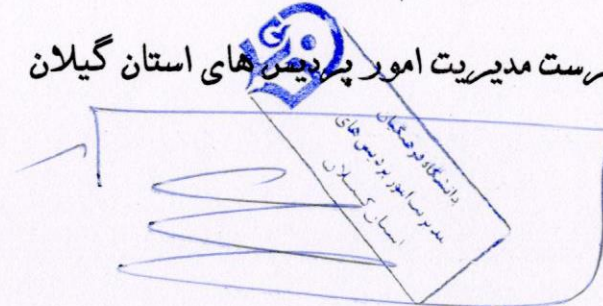 رست مدیریت امور پردیس های استان گیلان
دانشگاه فرهنگیان
مدیریت امور پردیس های
استان گیلان